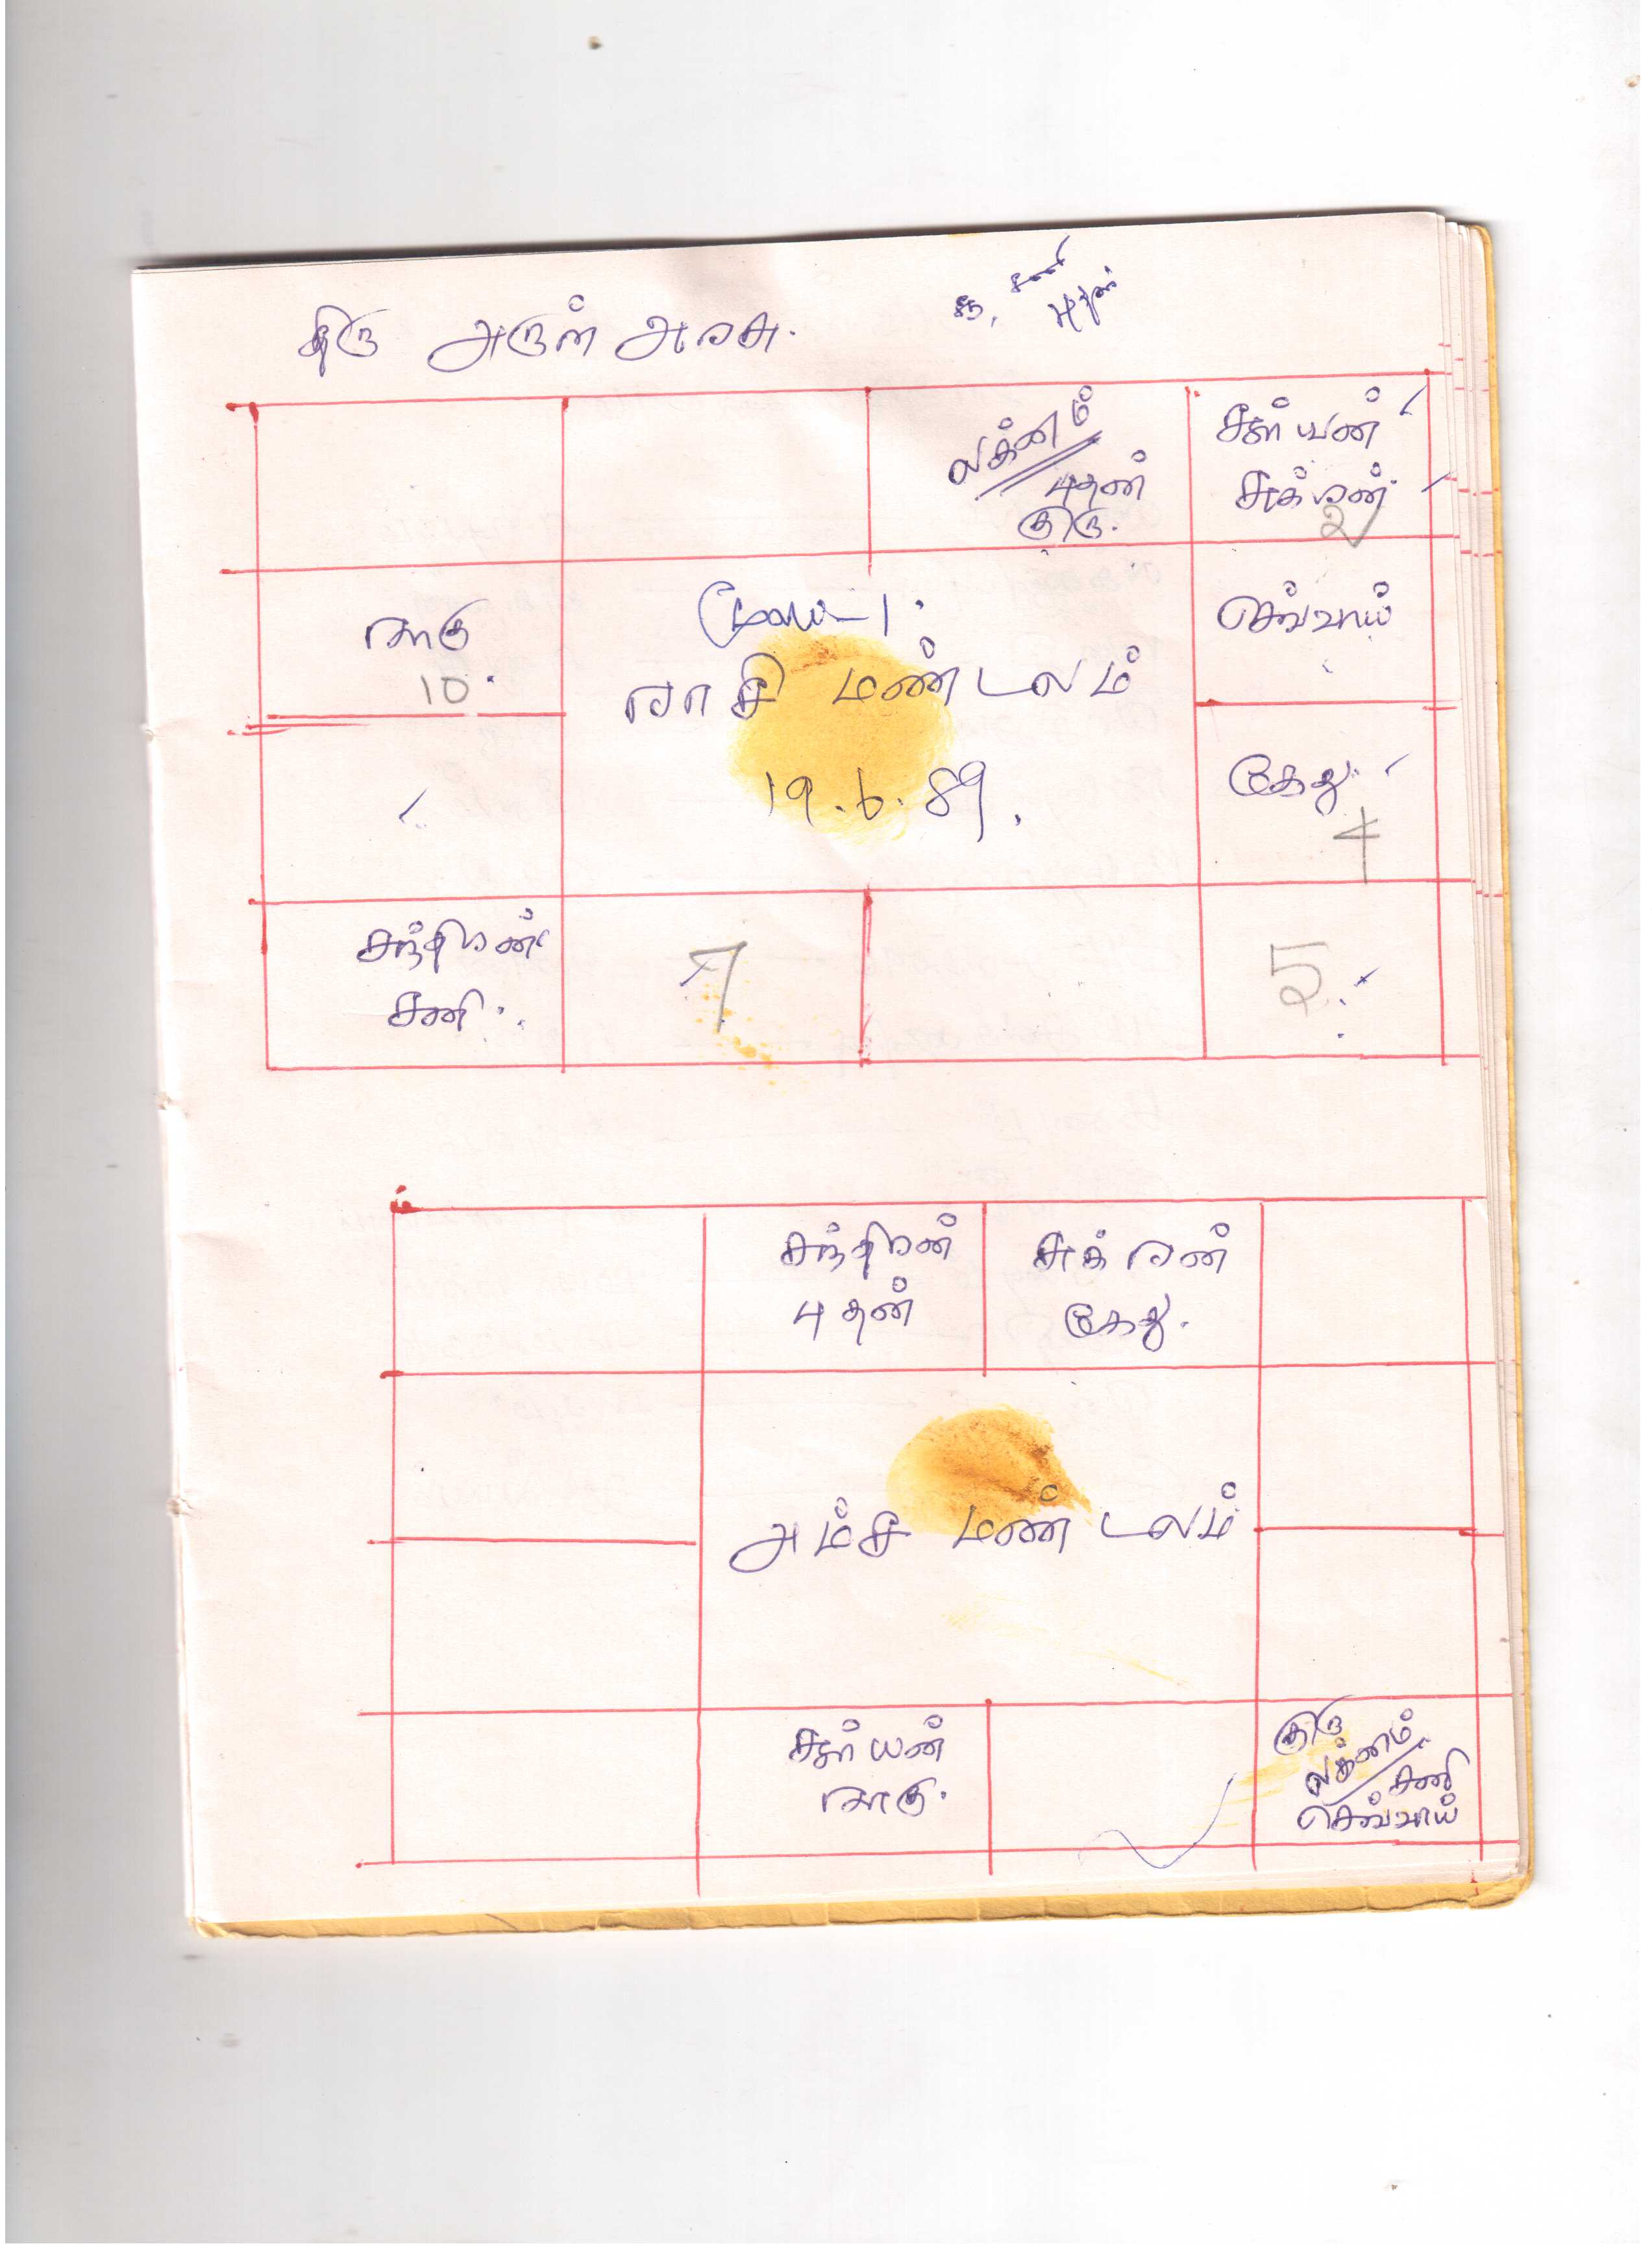 திரு அருள் அரசு.
லக்னம்
புதன்
குரு.
சூரியன்
சுக்ரன்
2
ராகு
10
மூலம் - 1.
ராசி மண்டலம்
19.6.89.
செவ்வாய்
கேது
4
சந்திரன்
சனி
7
5
சந்திரன்
புதன்
சுக்ரன்
கேது.
அம்ச மண்டலம்
சூரியன்
ராகு.
குரு
லக்னம்
சனி
செவ்வாய்